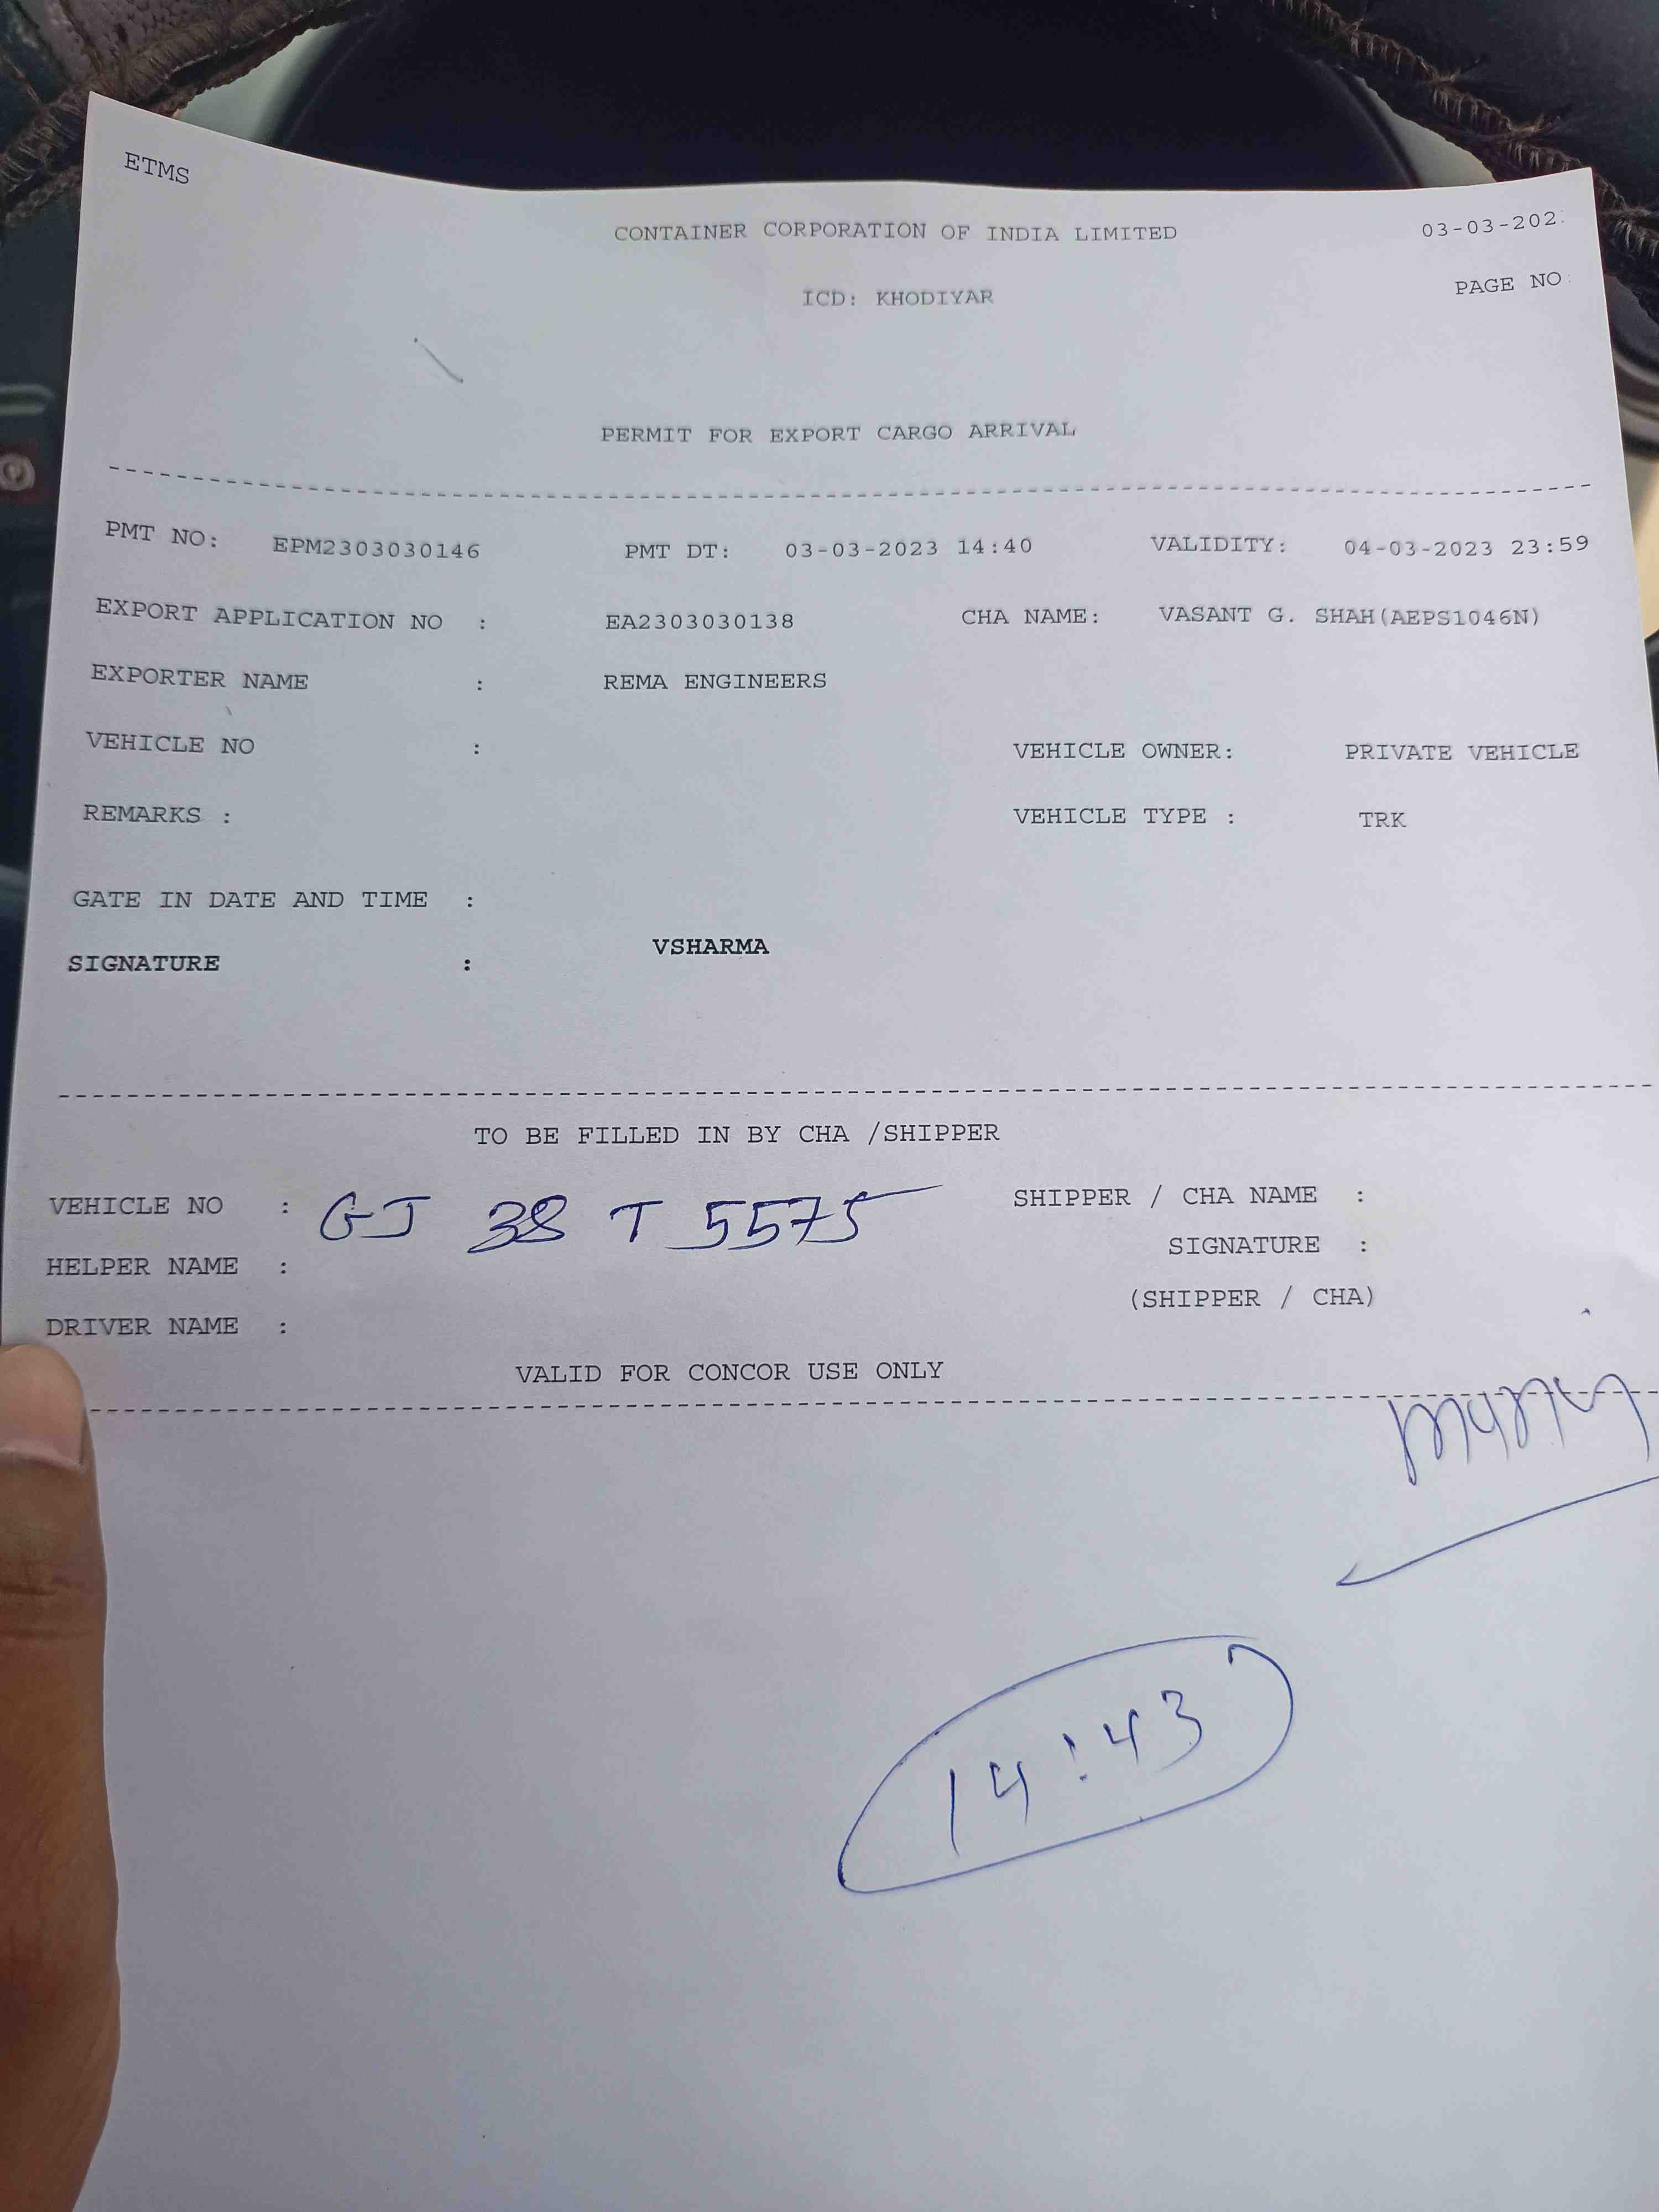 ETMS
CONTAINER CORPORATION OF INDIA LIMITED 03-03-202
ICD: KHODIYAR PAGE NO
PERMIT FOR EXPORT CARGO ARRIVAL
PMT NO: EPM2303030146 PMT DT: 03-03-2023 14:40 VALIDITY: 04-03-2023 23:59
EXPORT APPLICATION NO : EA2303030138 CHA NAME: VASANT G. SHAH(AEPS1046N)
EXPORTER NAME : REMA ENGINEERS
VEHICLE NO : VEHICLE OWNER: PRIVATE VEHICLE
REMARKS : VEHICLE TYPE : TRK
GATE IN DATE AND TIME :
SIGNATURE : VSHARMA
TO BE FILLED IN BY CHA /SHIPPER
VEHICLE NO : GJ 38 T 5575 SHIPPER / CHA NAME :
SIGNATURE :
HELPER NAME :
(SHIPPER / CHA)
DRIVER NAME :
VALID FOR CONCOR USE ONLY
14:43